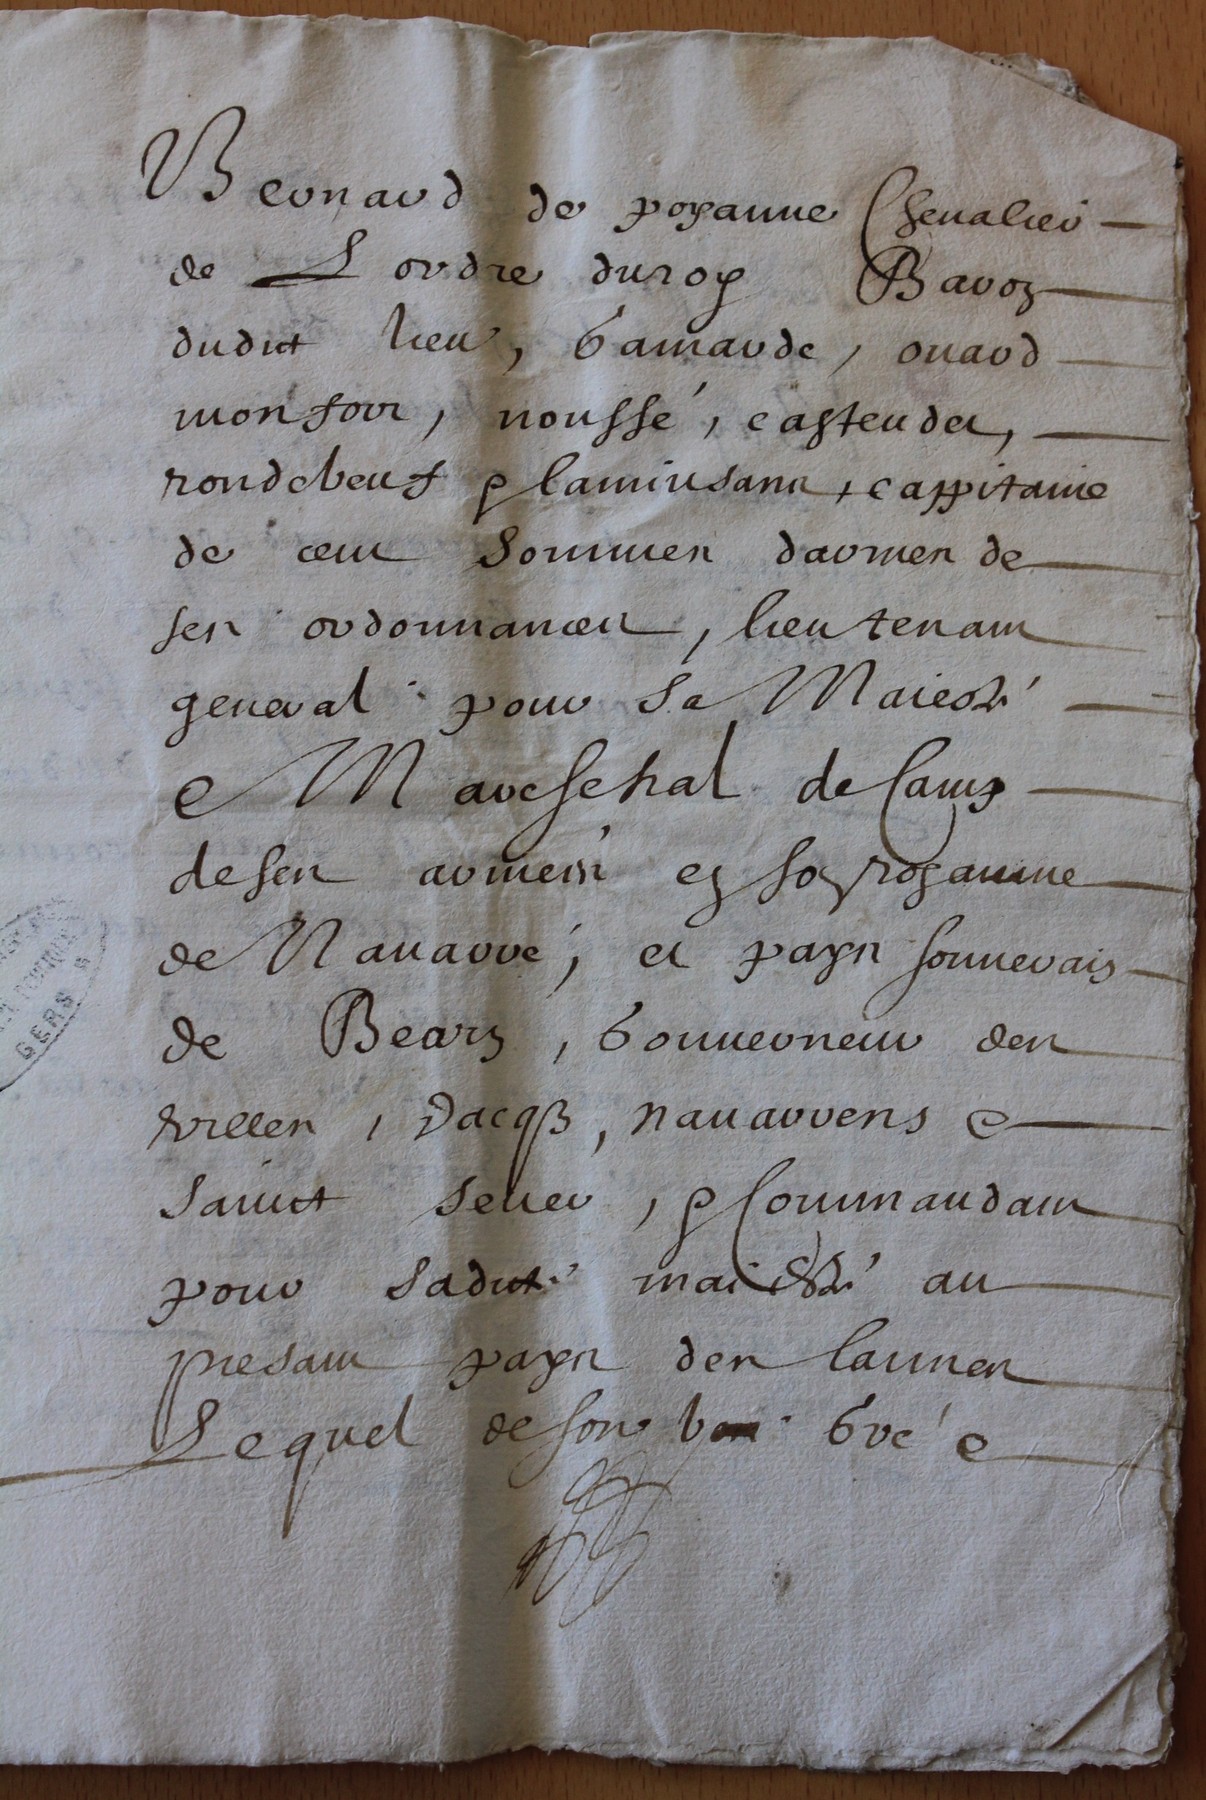 Bernard de poyanne Chevalier
de L ordre du roy Baron
dudict lieu, Gamarde, onard
monfort, noussé, castendet,
rondebeuf & lamiusans, cappitaine
de cent hommes d'armes de
ses ordonnances, lieutenant
general pour Sa Maiesté
& Mareschal de Camp
de ses armeés en son royaume
de Nauarre, et pays souuerain
de Bearn, Gouuerneur des
villes, Dacqs, nauarrens &
Sainct Seuer, & Commandant
pour sadicte maiesté au
presant pays des lannes
Lequel de son bon gré &
GERS